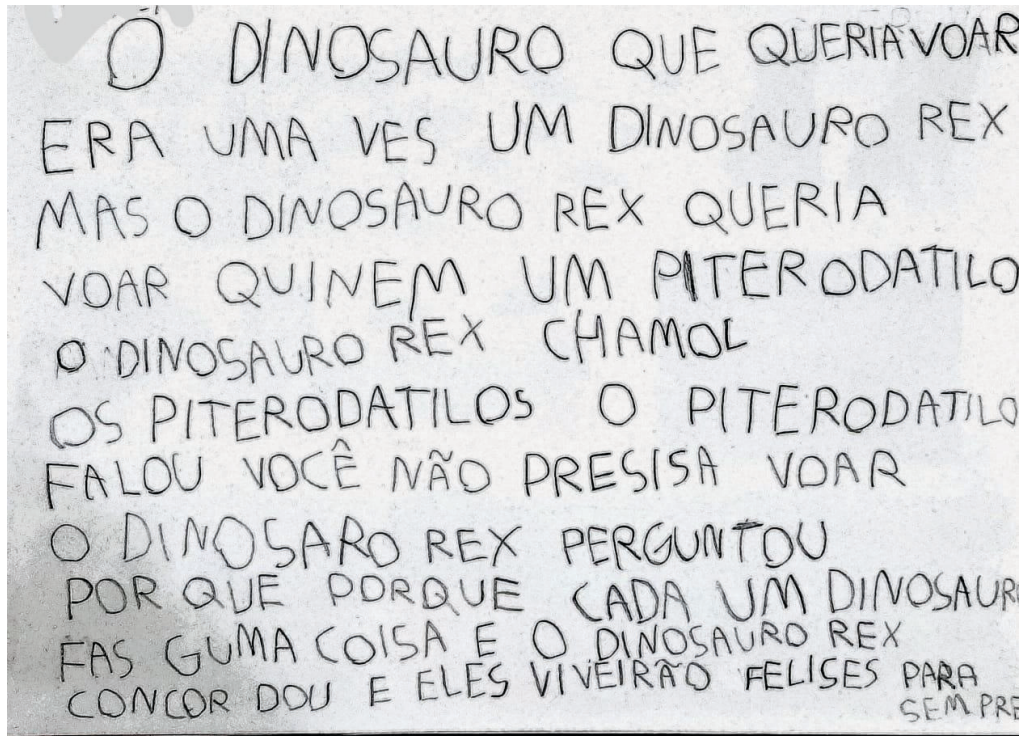 O DINOSAURO QUE QUERIA VOAR
ERA UMA VES UM DINOSAURO REX
MAS O DINOSAURO REX QUERIA
VOAR QUINEM UM PITERODATILO
O DINOSAURO REX CHAMOL
OS PITERODATILOS O PITERODATILO
FALOU VOCÊ NÃO PRESISA VOAR
O DINOSARO REX PERGUNTOU
POR QUE PORQUE CADA UM DINOSAURO
FAS GUMA COISA E O DINOSAURO REX
CONCOR DOU E ELES VIVEIRÃO FELISES PARA
SEMPRE